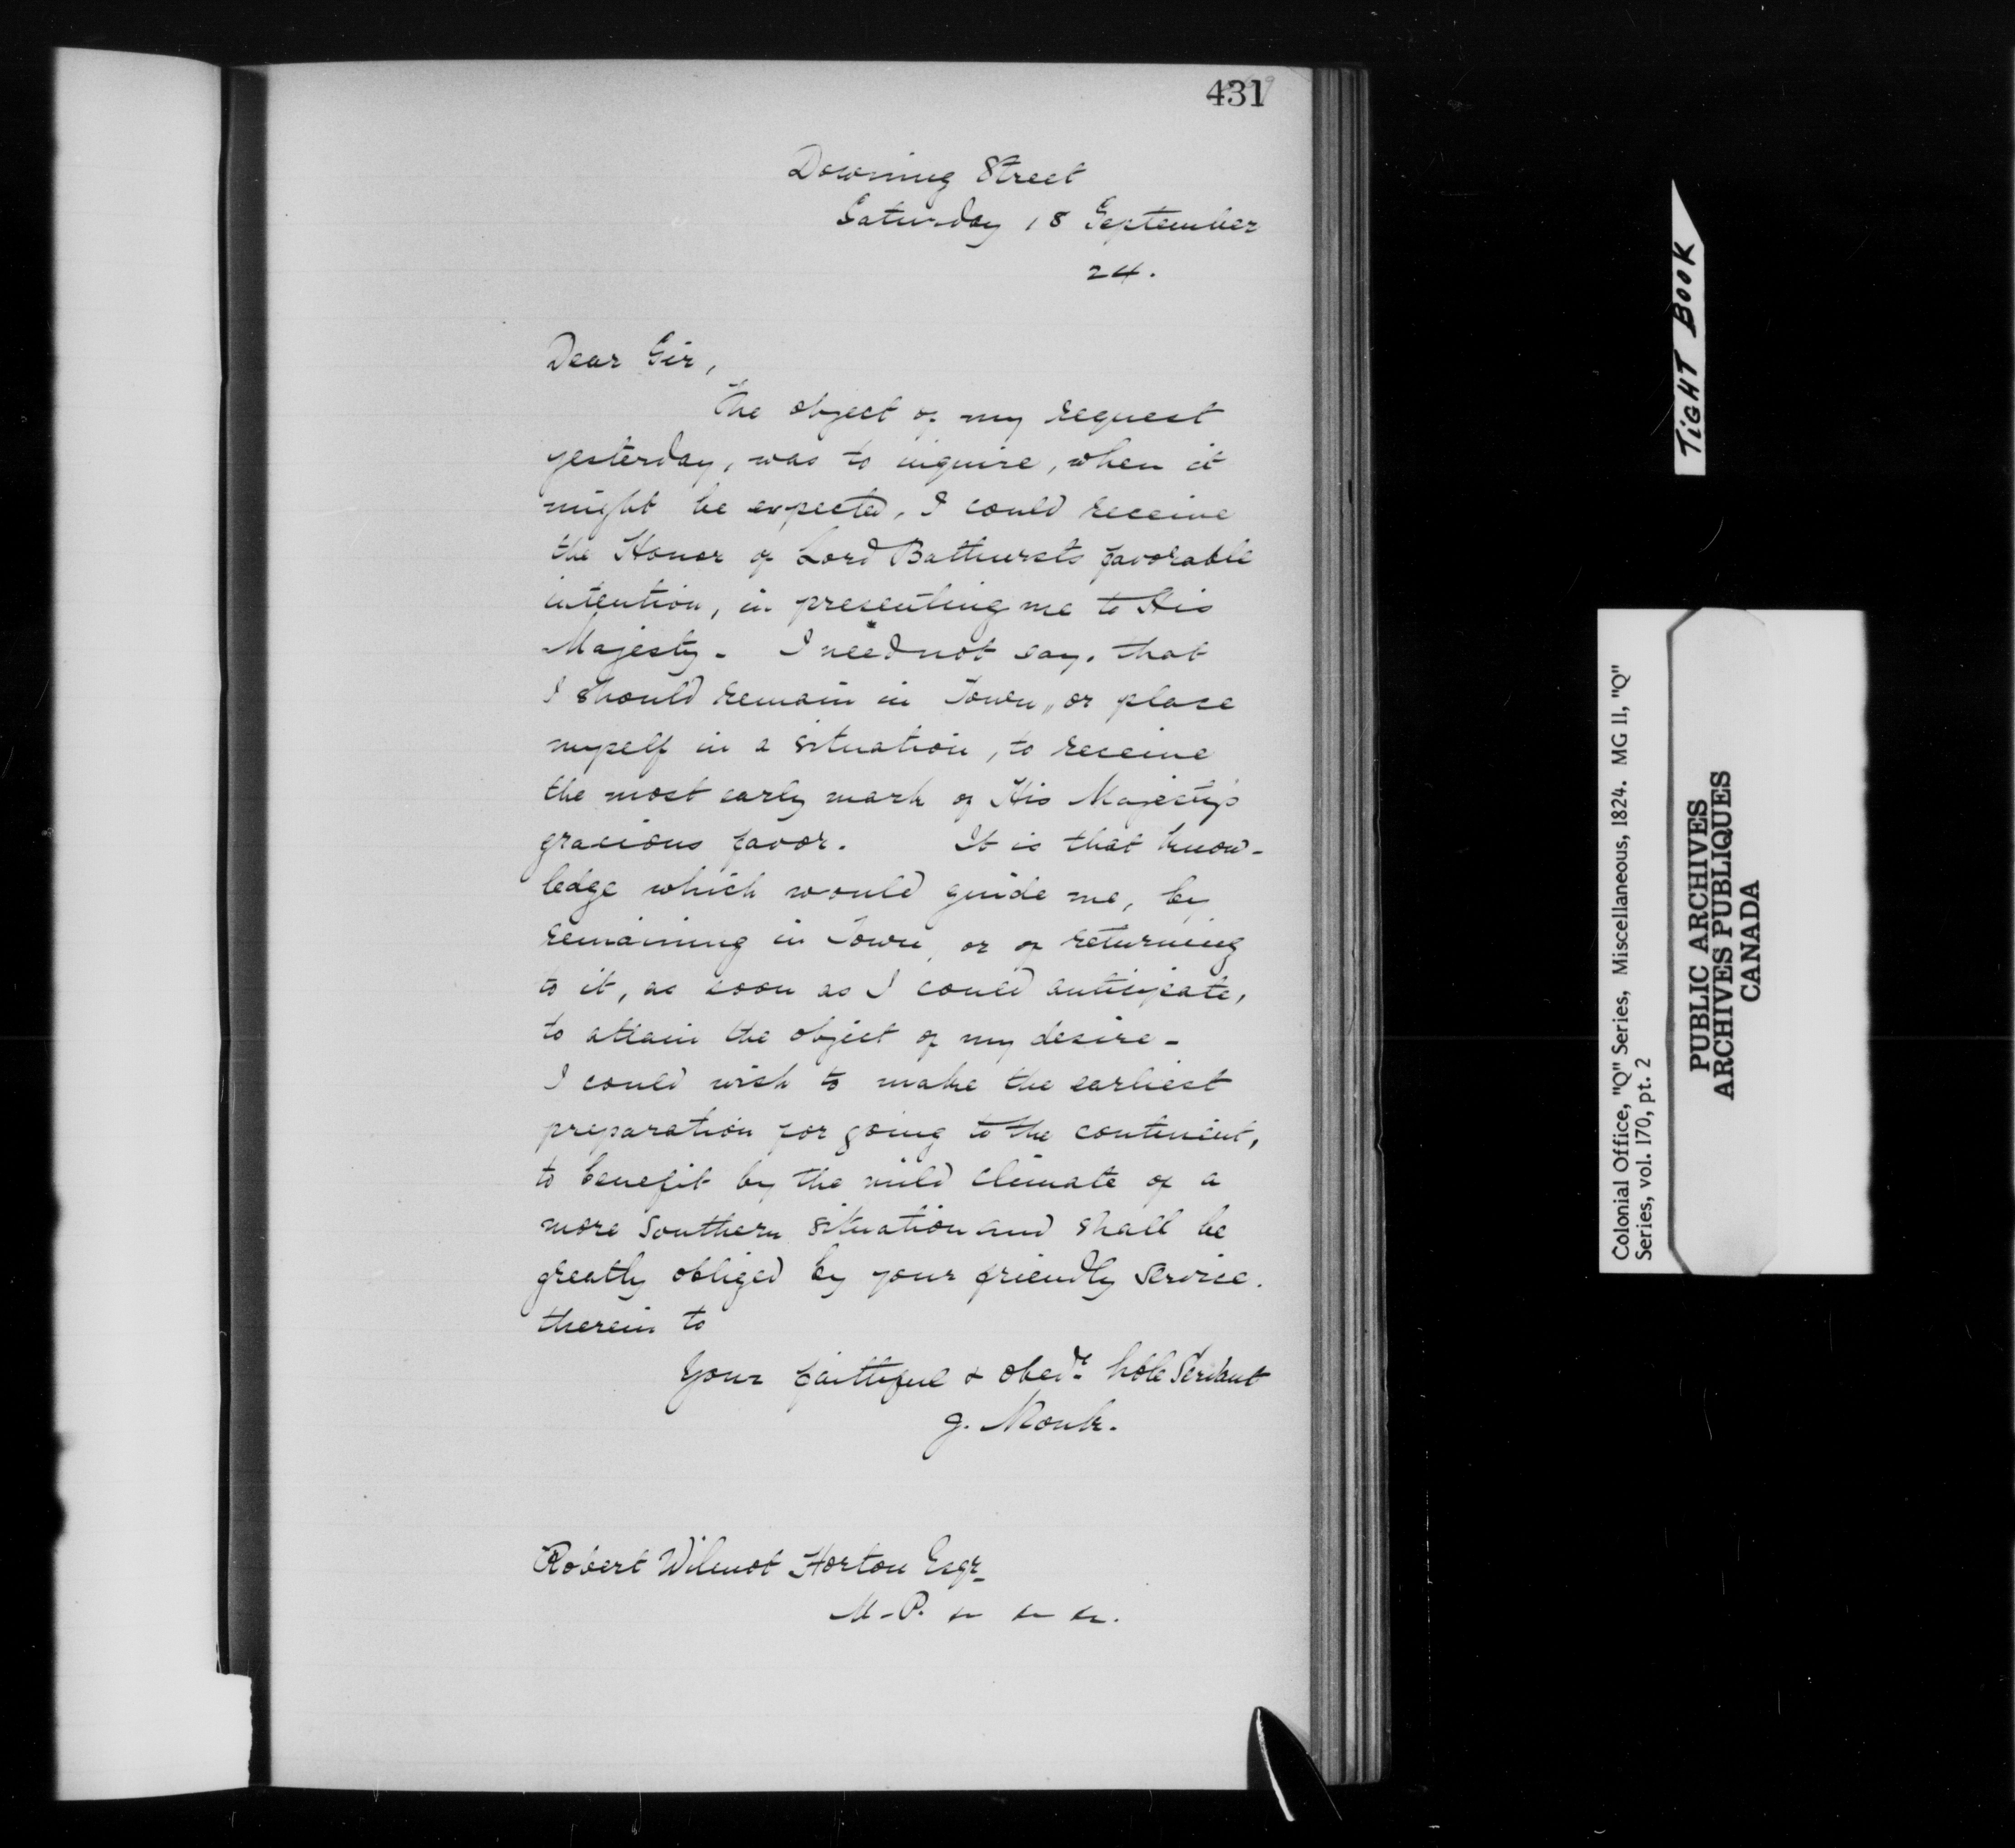 431
Downing Street
Saturday 18 September
24.
Dear Sir,
The object of my request
yesterday, was to inquire, when it
might be expected, I could receive
the Honor of Lord Bathursts favorable
intention, in presenting me to His
Majesty. I need not say, that
I should remain in Town, or place
myself in a situation, to receive
the most early mark of His Majesty's
gracious favor. It is that know-
ledge which would guide me, by
remaining in Town, or of returning
to it, as soon as I could anticipate,
to attain the object of my desire -
I could wish to make the earliest
preparation for going to the continent,
to benefit by the mild climate of a
more Southern situation and shall be
greatly obliged by your friendly service.
therein to
Your faithful & obedt. hble Servant
J. Monk.
Robert Wilmot Horton Esqr
M.P. &c &c &c.
TIGHT BOOK
Colonial Office, "Q" Series, Miscellaneous, 1824. MG 11, "Q"
Series, vol. 170, pt. 2
PUBLIC ARCHIVES
ARCHIVES PUBLIQUES
CANADA